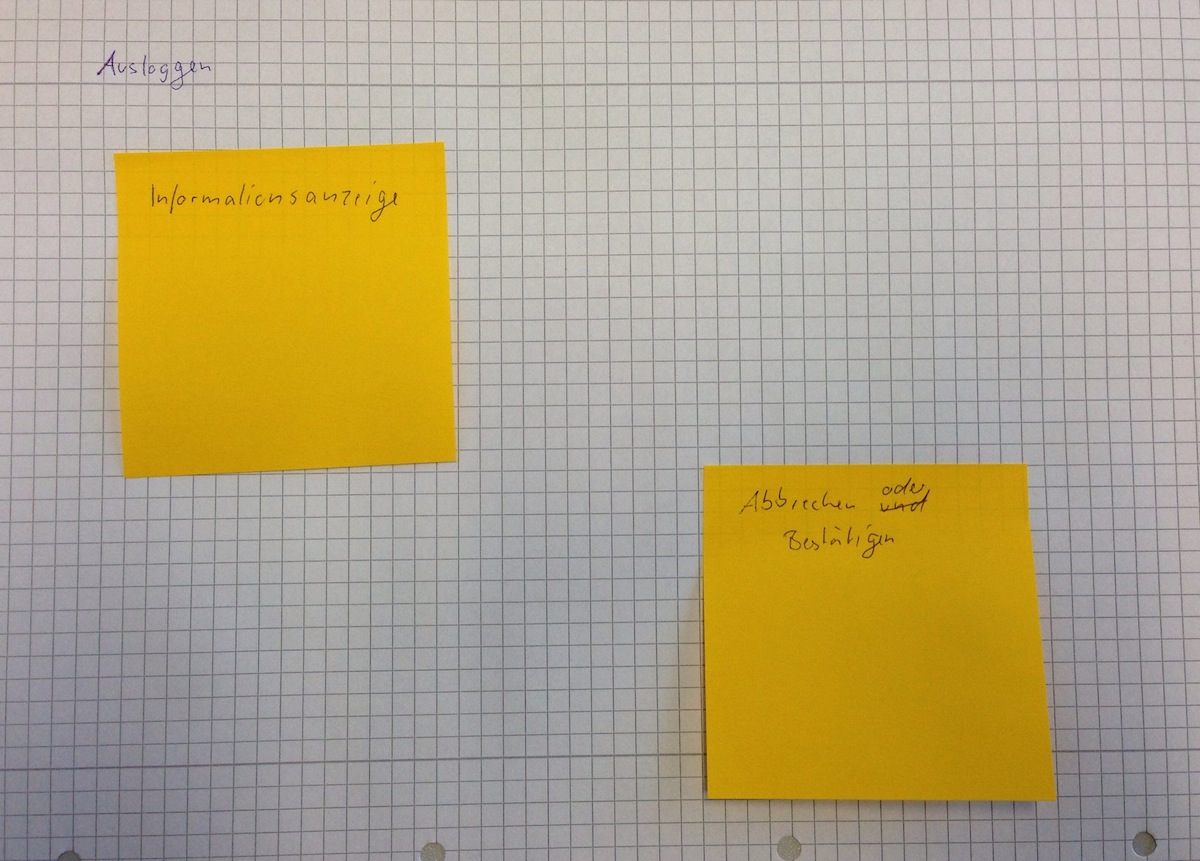 Ausloggen
Informationsanzeige
Abbrechen oder
und
Bestätigen